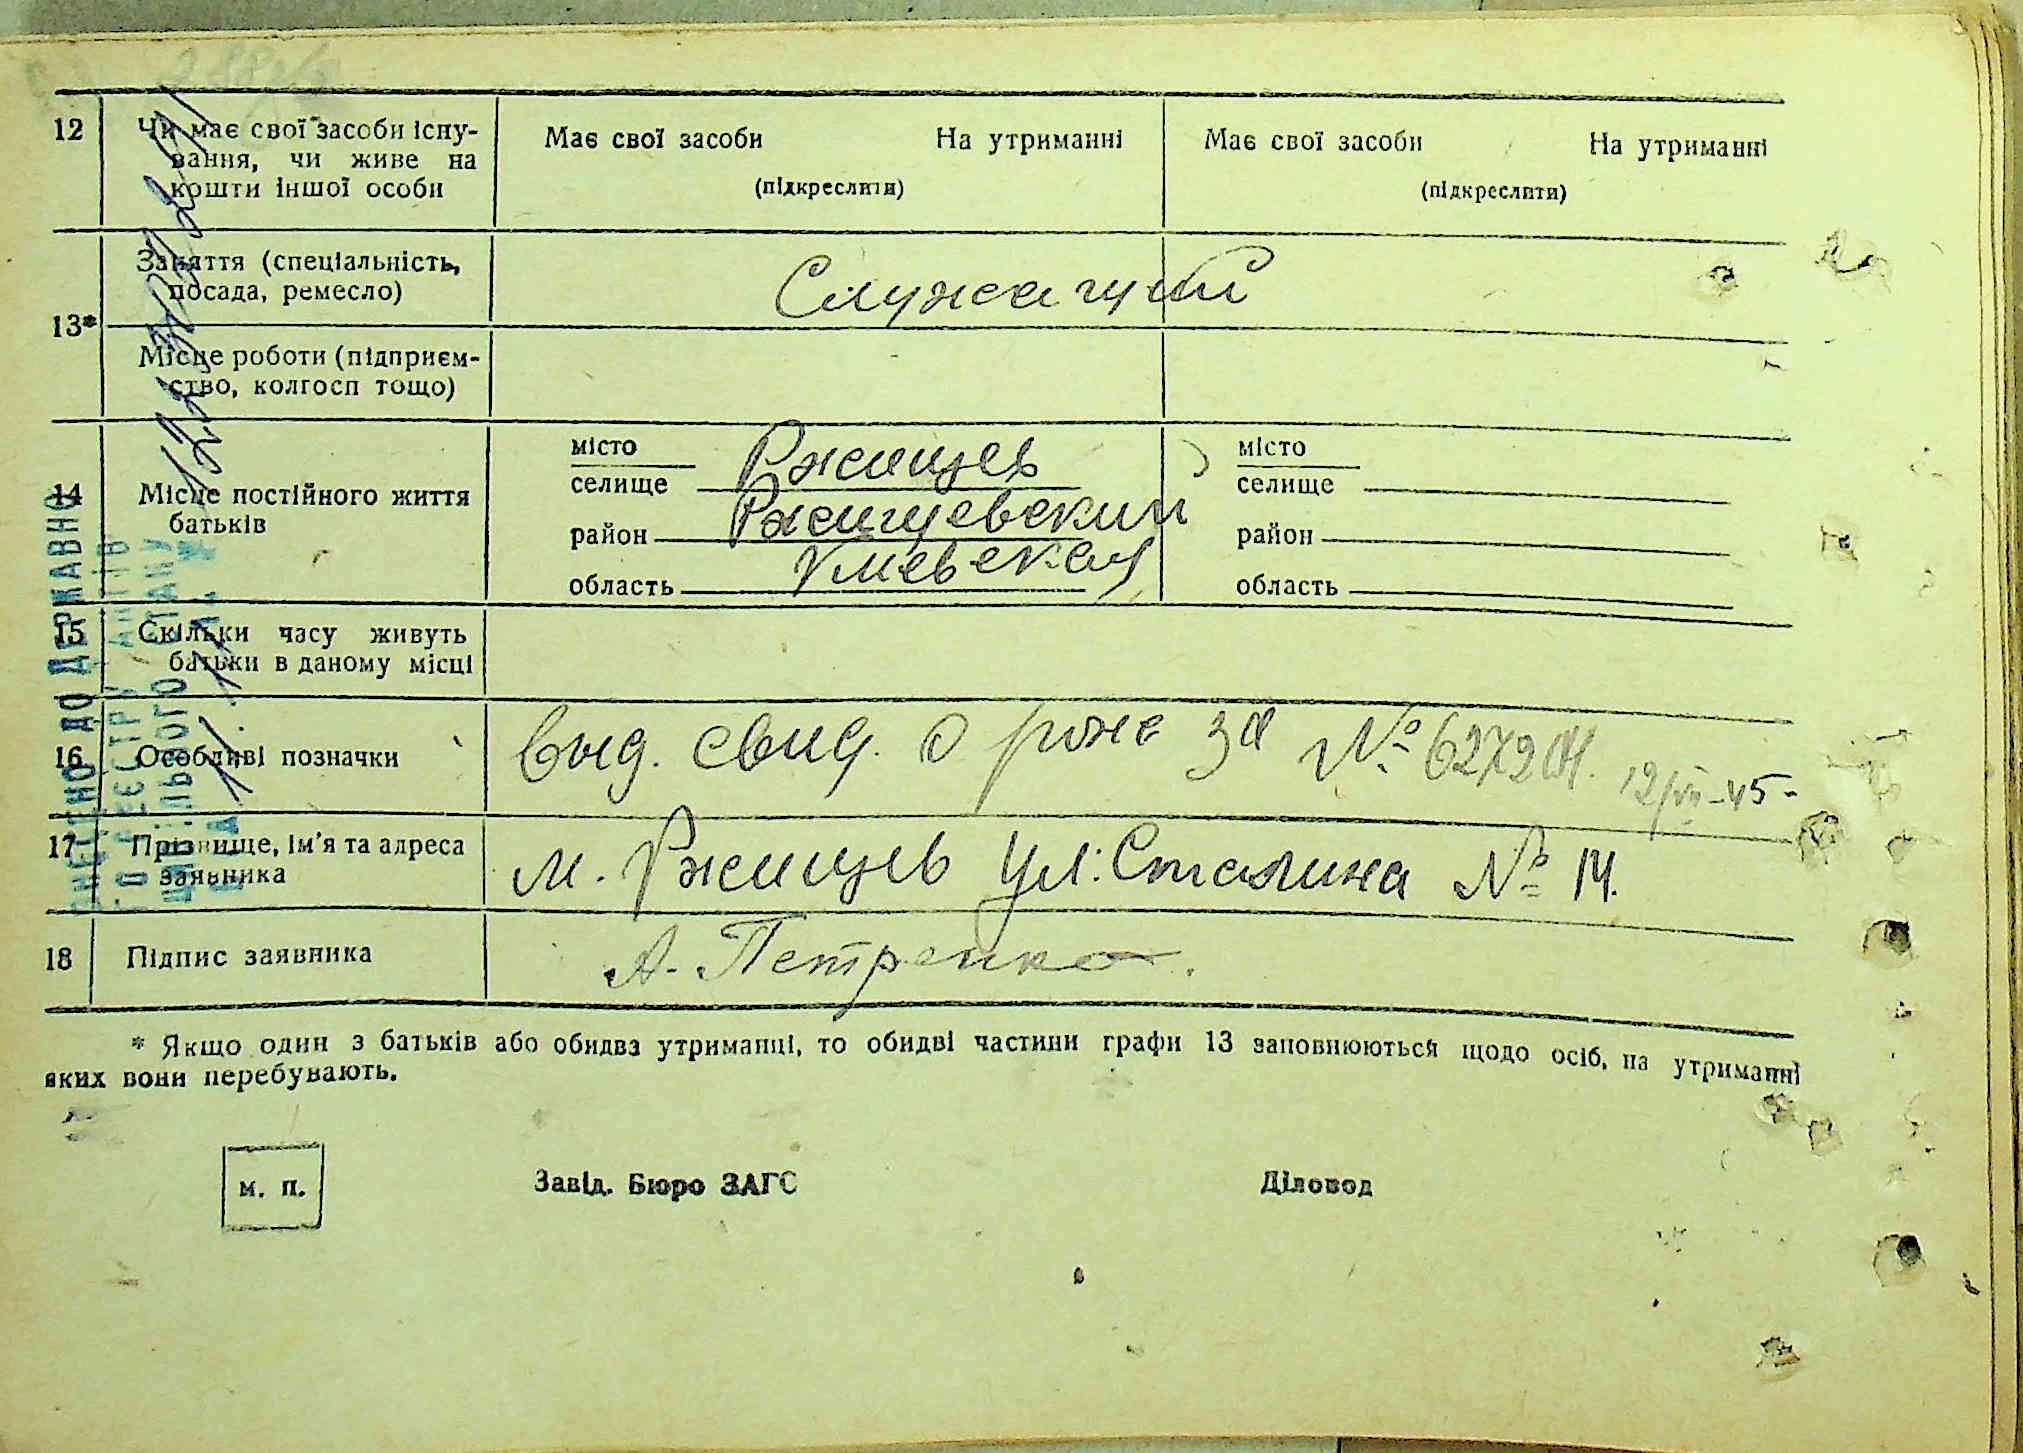 12 Чи має свої засоби існу-
вання, чи живе на
кошти іншої особи
Має свої засоби На утриманні
(підкреслити)
Має свої засоби На утриманні
(підкреслити)
13*
Заняття (спеціальність,
посада, ремесло)
Служащий
Місце роботи (підприєм-
ство, колгосп тощо)
14 Місце постійного життя
батьків
місто
селище Ржищев
район Ржищевский
область Киевская
місто
селище
район
область
15 Скільки часу живуть
батьки в даному місці
16 Особливі позначки
Выд. свид. о рожд за №
12/VII-45-
17 Прізвище, ім'я та адреса
заявника
м. Ржищев ул: Сталина № 14.
18 Підпис заявника
А. Петренко.
* Якщо один з батьків або обидва утриманці, то обидві частини графи 13 заповнюються щодо осіб, на утриманні
яких вони перебувають.
м. п.
Завід. Бюро ЗАГС
Діловод
ВНЕСЕНО ДО ДЕРЖАВНО
ГО РЕЄСТРУ АКТІВ
ЦИВІЛЬНОГО СТАНУ